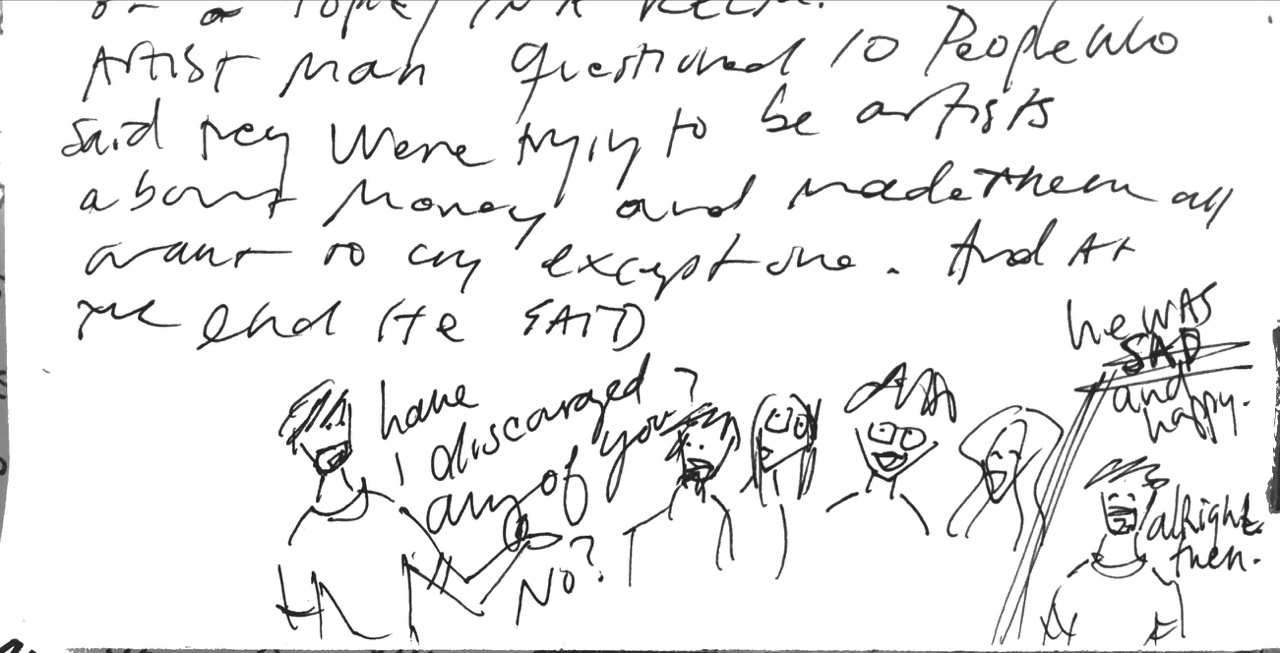 Artist Man questioned 10 People who
said they were trying to be artists
about Money and made them all
want to cry except one. And At
the end He SAID
have
I discouraged
any of you?
NO?
he WAS
SAD
and
happy.
alright
then.